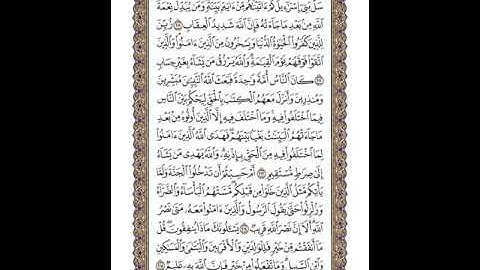 سَلۡ بَنِيٓ إِسۡرَٰٓءِيلَ كَمۡ ءَاتَيۡنَٰهُم مِّنۡ ءَايَةِۭ بَيِّنَةٖۗ وَمَن يُبَدِّلۡ نِعۡمَةَ
ٱللَّهِ مِنۢ بَعۡدِ مَا جَآءَتۡهُ فَإِنَّ ٱللَّهَ شَدِيدُ ٱلۡعِقَابِ ٢١١ زُيِّنَ
لِلَّذِينَ كَفَرُواْ ٱلۡحَيَوٰةُ ٱلدُّنۡيَا وَيَسۡخَرُونَ مِنَ ٱلَّذِينَ ءَامَنُواْۘ وَٱلَّذِينَ
ٱتَّقَوۡاْ فَوۡقَهُمۡ يَوۡمَ ٱلۡقِيَٰمَةِۗ وَٱللَّهُ يَرۡزُقُ مَن يَشَآءُ بِغَيۡرِ حِسَابٖ
٢١٢ كَانَ ٱلنَّاسُ أُمَّةٗ وَٰحِدَةٗ فَبَعَثَ ٱللَّهُ ٱلنَّبِيِّـۧنَ مُبَشِّرِينَ
وَمُنذِرِينَ وَأَنزَلَ مَعَهُمُ ٱلۡكِتَٰبَ بِٱلۡحَقِّ لِيَحۡكُمَ بَيۡنَ ٱلنَّاسِ
فِيمَا ٱخۡتَلَفُواْ فِيهِۚ وَمَا ٱخۡتَلَفَ فِيهِ إِلَّا ٱلَّذِينَ أُوتُوهُ مِنۢ بَعۡدِ
مَا جَآءَتۡهُمُ ٱلۡبَيِّنَٰتُ بَغۡيَۢا بَيۡنَهُمۡۖ فَهَدَى ٱللَّهُ ٱلَّذِينَ ءَامَنُواْ
لِمَا ٱخۡتَلَفُواْ فِيهِ مِنَ ٱلۡحَقِّ بِإِذۡنِهِۦۗ وَٱللَّهُ يَهۡدِي مَن يَشَآءُ
إِلَىٰ صِرَٰطٖ مُّسۡتَقِيمٍ ٢١٣ أَمۡ حَسِبۡتُمۡ أَن تَدۡخُلُواْ ٱلۡجَنَّةَ وَلَمَّا
يَأۡتِكُم مَّثَلُ ٱلَّذِينَ خَلَوۡاْ مِن قَبۡلِكُمۖ مَّسَّتۡهُمُ ٱلۡبَأۡسَآءُ وَٱلضَّرَّآءُ
وَزُلۡزِلُواْ حَتَّىٰ يَقُولَ ٱلرَّسُولُ وَٱلَّذِينَ ءَامَنُواْ مَعَهُۥ مَتَىٰ نَصۡرُ
ٱللَّهِۗ أَلَآ إِنَّ نَصۡرَ ٱللَّهِ قَرِيبٞ ٢١٤ يَسۡـَٔلُونَكَ مَاذَا يُنفِقُونَۖ قُلۡ
مَآ أَنفَقۡتُم مِّنۡ خَيۡرٖ فَلِلۡوَٰلِدَيۡنِ وَٱلۡأَقۡرَبِينَ وَٱلۡيَتَٰمَىٰ وَٱلۡمَسَٰكِينِ
وَٱبۡنِ ٱلسَّبِيلِۗ وَمَا تَفۡعَلُواْ مِنۡ خَيۡرٖ فَإِنَّ ٱللَّهَ بِهِۦ عَلِيمٞ ٢١٥